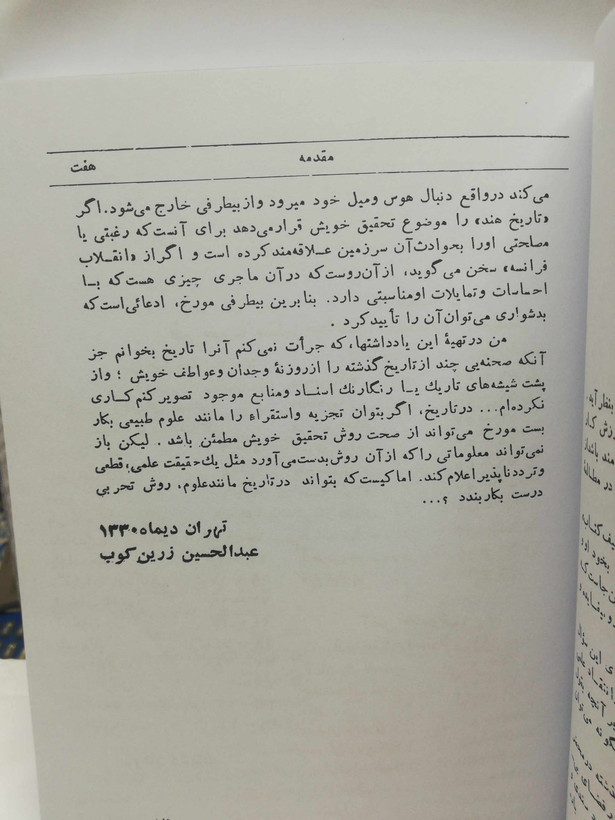 مقدمه
هفت
می‌کند درواقع دنبال هوس ومیل خود میرود وازبیطرفی خارج می‌شود. اگر
«تاریخ هند» را موضوع تحقیق خویش قرارمی‌دهد برای آنست‌که رغبتی یا
مصلحتی اورا بحوادث‌آن سرزمین علاقه‌مندکرده است و اگراز «انقلاب
فرانسه» سخن می‌گوید، ازآن‌روست‌که درآن ماجری چیزی هست‌که بـا
احساسات وتمایلات اومناسبتی دارد. بنابرین بیطرفی مورخ، ادعائی‌است‌که
بدشواری می‌توان‌آن را تأییدکرد .
من درتهیهٔ این یادداشتها، که جرأت نمی‌کنم آنرا تاریخ بخوانم جز
آنکه صحنه‌یی چند ازتاریخ‌گذشته را ازروزنهٔ وجدان وعواطف خویش ؛ واز
پشت شیشه‌های تاریك یـا رنگارنك اسناد ومنابع موجود تصویرکنم‌کـاری
نکرده‌ام... درتاریخ، اگربتوان تجزیه واستقراء را مانند علوم طبیعی بکار
بست مورخ می‌تواند از صحت روش تحقیق خویش مطمئن باشد . لیکن باز
نمی‌تواند معلوماتی راکه ازآن روش‌بدست‌می‌آورد مثل یك‌حقیقت علمی، قطعی
وتردیدناپذیراعلام‌کند. اماکیست‌که بتواند درتاریخ مانندعلوم، روش تجربی
درست بکاربندد ؟...
تهران دیماه ۱۳۳۰
عبدالحسین زرین‌کوب